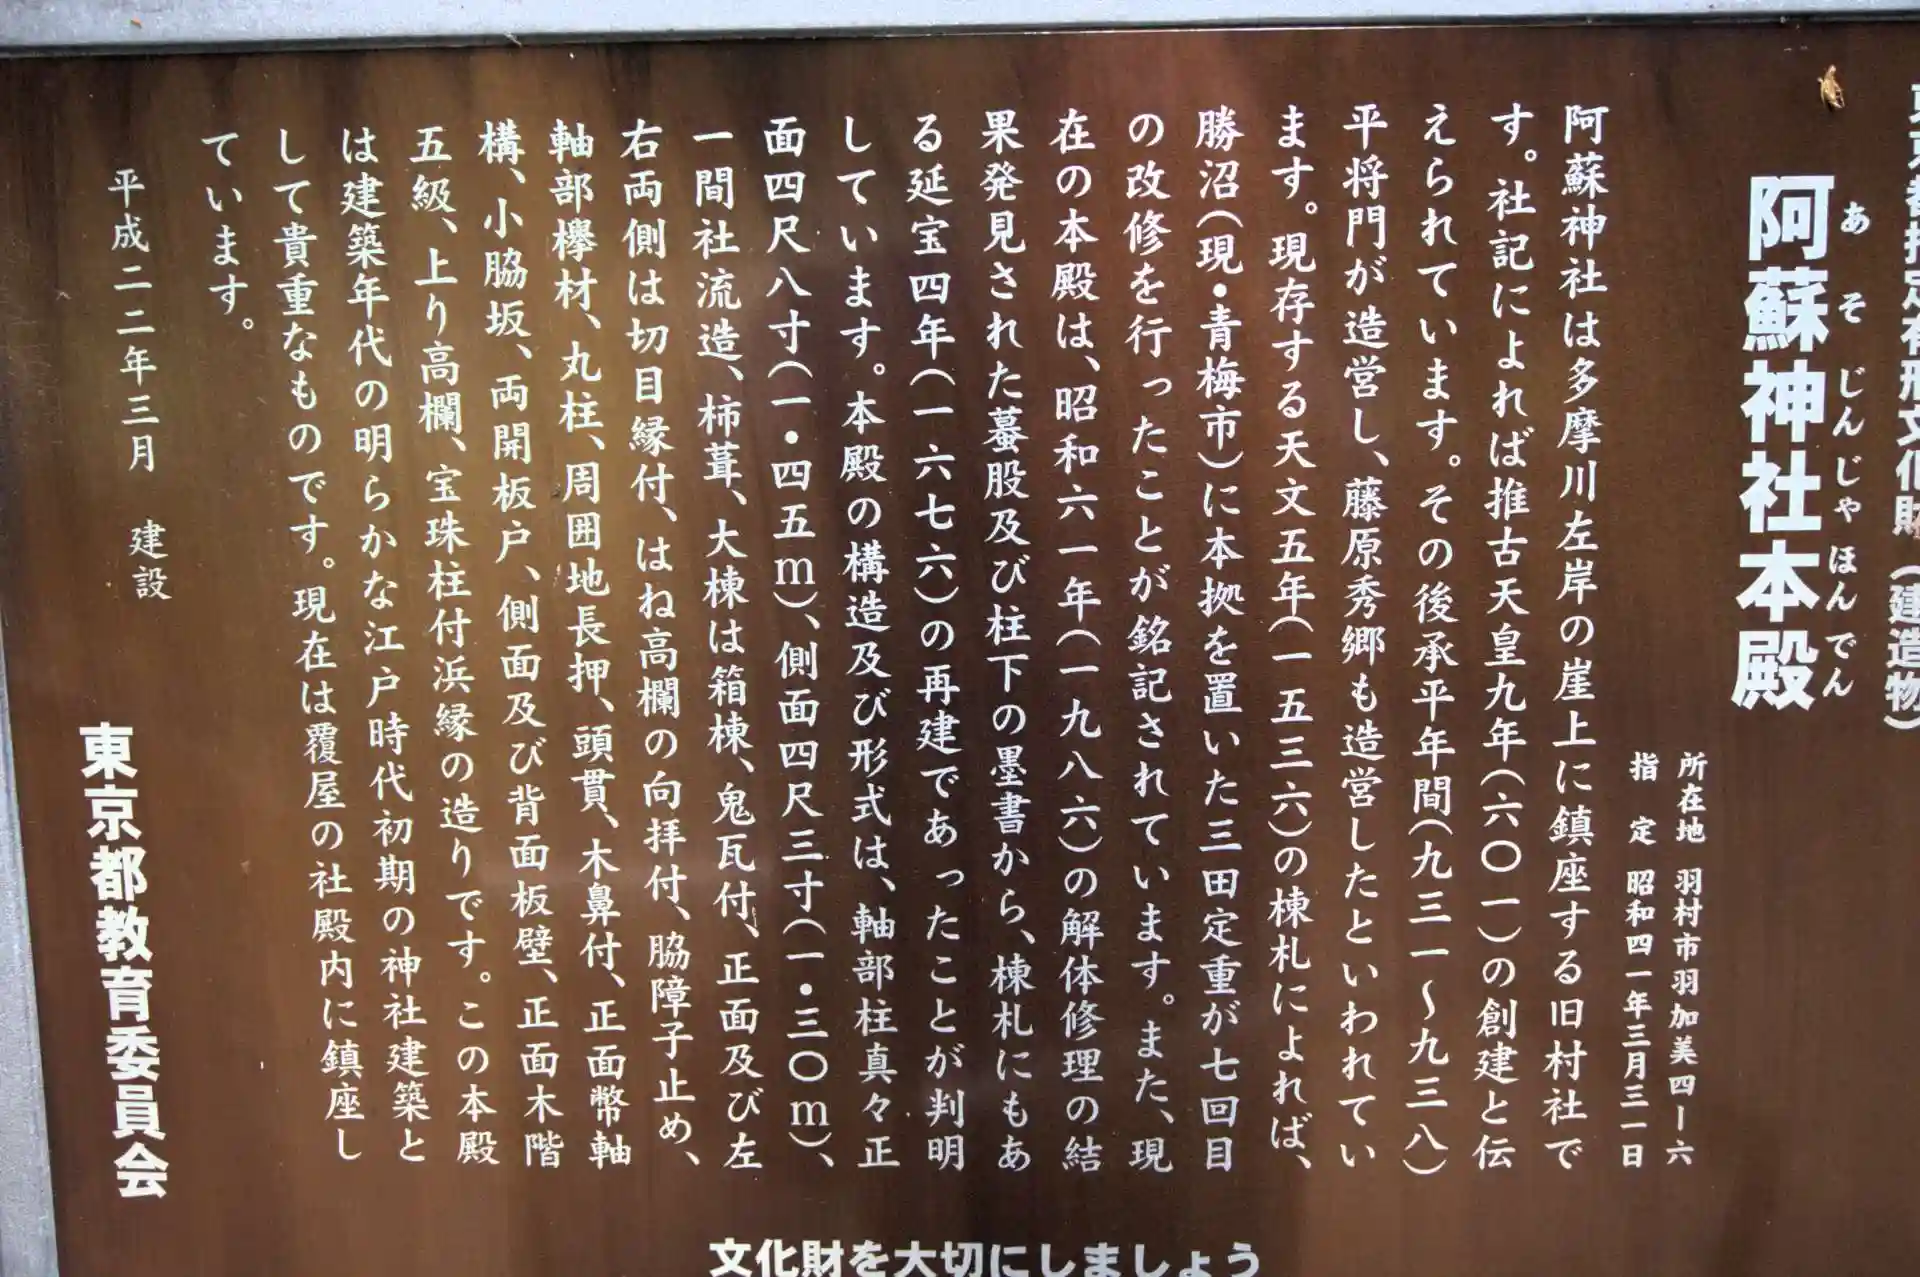 東京都指定有形文化財（建造物）
阿蘇神社本殿
あそじんじゃほんでん
所在地 羽村市羽加美四ー六
指 定 昭和四一年三月三一日
阿蘇神社は多摩川左岸の崖上に鎮座する旧村社で
す。社記によれば推古天皇九年（六〇一）の創建と伝
えられています。その後承平年間（九三一～九三八）
平将門が造営し、藤原秀郷も造営したといわれてい
ます。現存する天文五年（一五三六）の棟札によれば、
勝沼（現・青梅市）に本拠を置いた三田定重が七回目
の改修を行ったことが銘記されています。また、現
在の本殿は、昭和六一年（一九八六）の解体修理の結
果発見された蟇股及び柱下の墨書から、棟札にもあ
る延宝四年（一六七六）の再建であったことが判明
しています。本殿の構造及び形式は、軸部柱真々正
面四尺八寸（一・四五ｍ）、側面四尺三寸（一・三〇ｍ）、
一間社流造、柿葺、大棟は箱棟、鬼瓦付、正面及び左
右両側は切目縁付、はね高欄の向拝付、脇障子止め、
軸部欅材、丸柱、周囲地長押、頭貫、木鼻付、正面幣軸
構、小脇坂、両開板戸、側面及び背面板壁、正面木階
五級、上り高欄、宝珠柱付浜縁の造りです。この本殿
は建築年代の明らかな江戸時代初期の神社建築と
して貴重なものです。現在は覆屋の社殿内に鎮座し
ています。
平成二二年三月 建設
東京都教育委員会
文化財を大切にしましょう